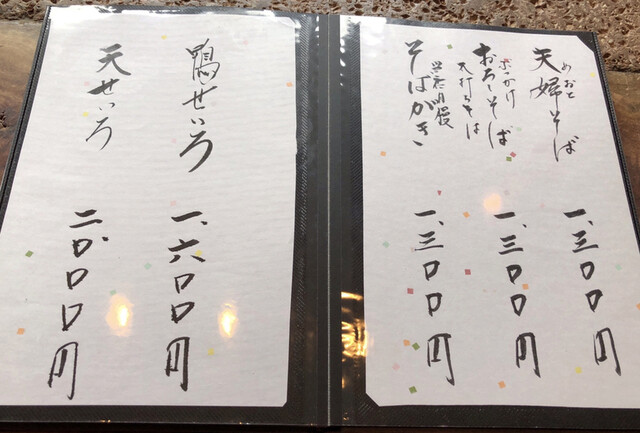 めおと
夫婦そば 一、三〇〇円
ぶっかけ
おろしそば 一、三〇〇円
そばがき 一、三〇〇円
鴨せいろ 一、六〇〇円
天せいろ 二、〇〇〇円